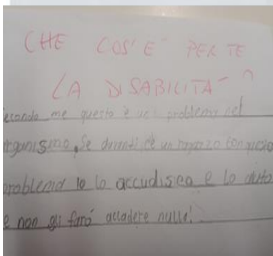 CHE COS'E' PER TE
LA DISABILITA' ?
econdo me questo è un problema del
rganismo, Se davanti c'è un ragazzo con questo
problema io lo accudisco e lo aiuto
e non gli farò accadere nulla!